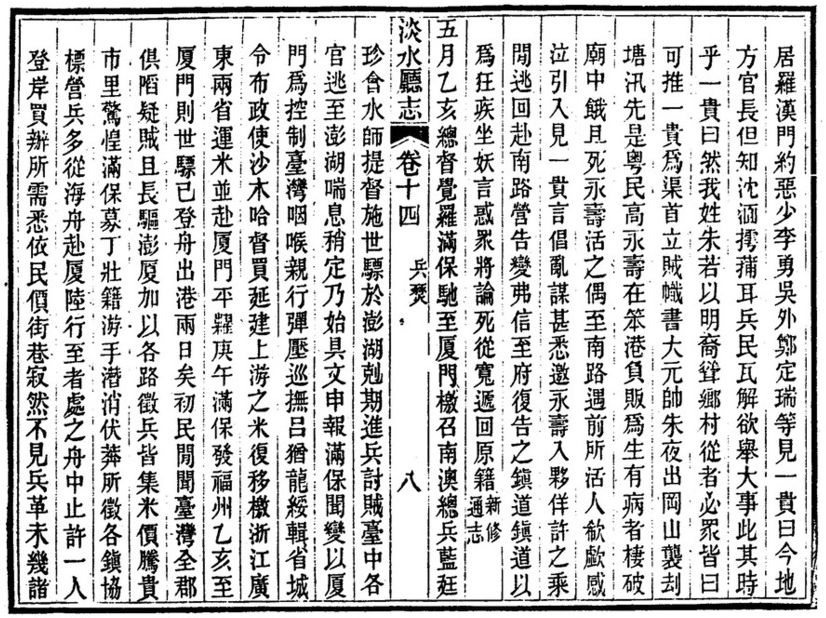 居羅漢門約惡少李勇吳外鄭定瑞等見一貴曰今地
方官長但知沈湎摴蒱耳兵民瓦解欲舉大事此其時
乎一貴曰然我姓朱若以明裔聳鄉村從者必眾皆曰
可推一貴爲渠首立賊幟書大元帥朱夜出岡山襲刦
塘汛先是粵民高永壽在笨港負販爲生有病者棲破
廟中餓且死永壽活之偶至南路遇前所活人欷歔感
泣引入見一貴言倡亂謀甚悉邀永壽入夥佯許之乘
閒逃回赴南路營告變弗信至府復告之鎮道鎮道以
爲狂疾坐妖言惑眾將論死從寬遞回原籍新修通志
五月乙亥總督覺羅滿保馳至厦門檄召南澳總兵藍廷
淡水廳志 卷十四 兵燹 八
珍會水師提督施世驃於澎湖剋期進兵討賊臺中各
官逃至澎湖喘息稍定乃始具文申報滿保聞變以厦
門爲控制臺灣咽喉親行彈壓巡撫呂猶龍綏輯省城
令布政使沙木哈督買延建上游之米復移檄浙江廣
東兩省運米並赴厦門平糶庚午滿保發福州乙亥至
厦門則世驃已登舟出港兩日矣初民閒聞臺灣全郡
俱陷疑賊且長驅澎厦加以各路徵兵皆集米價騰貴
市里驚惶滿保募丁壯籍游手潛消伏莽所徵各鎮協
標營兵多從海舟赴厦陸行至者處之舟中止許一人
登岸買辦所需悉依民價街巷寂然不見兵革未幾諸